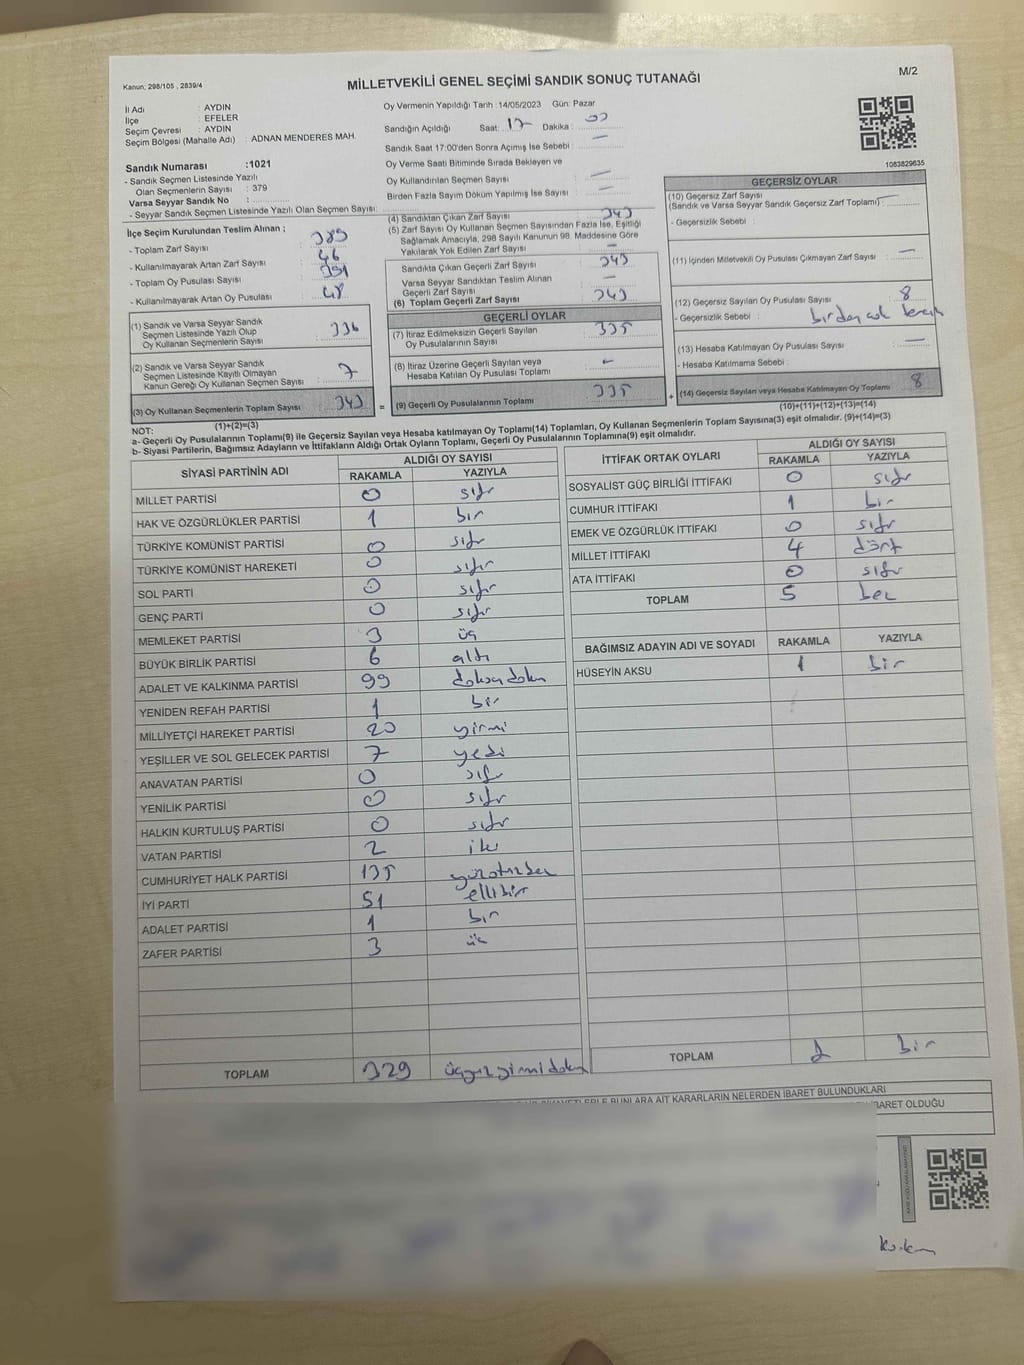 Kanun; 298/105 , 2839/4
MİLLETVEKİLİ GENEL SEÇİMİ SANDIK SONUÇ TUTANAĞI
M/2
İl Adı : AYDIN
İlçe : EFELER
Seçim Çevresi : AYDIN
Seçim Bölgesi (Mahalle Adı) : ADNAN MENDERES MAH.
Sandık Numarası :1021
- Sandık Seçmen Listesinde Yazılı
Olan Seçmenlerin Sayısı : 379
Varsa Seyyar Sandık No :
- Seyyar Sandık Seçmen Listesinde Yazılı Olan Seçmen Sayısı:
İlçe Seçim Kurulundan Teslim Alınan ;
- Toplam Zarf Sayısı : 389
- Kullanılmayarak Artan Zarf Sayısı : 46
- Toplam Oy Pusulası Sayısı : 391
- Kullanılmayarak Artan Oy Pusulası : 48
(1) Sandık ve Varsa Seyyar Sandık
Seçmen Listesinde Yazılı Olup
Oy Kullanan Seçmenlerin Sayısı : 336
(2) Sandık ve Varsa Seyyar Sandık
Seçmen Listesinde Kayıtlı Olmayan
Kanun Gereği Oy Kullanan Seçmen Sayısı : 7
(3) Oy Kullanan Seçmenlerin Toplam Sayısı : 343 =
(1)+(2)=(3)
Oy Vermenin Yapıldığı Tarih :14/05/2023 Gün: Pazar
Sandığın Açıldığı Saat: 17 Dakika : 00
Sandık Saat 17:00'den Sonra Açılmış İse Sebebi : —
Oy Verme Saati Bitiminde Sırada Bekleyen ve
Oy Kullandırılan Seçmen Sayısı : —
Birden Fazla Sayım Döküm Yapılmış İse Sayısı : —
(4) Sandıktan Çıkan Zarf Sayısı : 343
(5) Zarf Sayısı Oy Kullanan Seçmen Sayısından Fazla İse, Eşitliği
Sağlamak Amacıyla, 298 Sayılı Kanunun 98. Maddesine Göre
Yakılarak Yok Edilen Zarf Sayısı : —
Sandıkta Çıkan Geçerli Zarf Sayısı : 343
Varsa Seyyar Sandıktan Teslim Alınan
Geçerli Zarf Sayısı : —
(6) Toplam Geçerli Zarf Sayısı : 343
GEÇERLİ OYLAR
(7) İtiraz Edilmeksizin Geçerli Sayılan
Oy Pusulalarının Sayısı : 335
(8) İtiraz Üzerine Geçerli Sayılan veya
Hesaba Katılan Oy Pusulası Toplamı : -
(9) Geçerli Oy Pusulalarının Toplamı : 335 +
1083829635
GEÇERSİZ OYLAR
(10) Geçersiz Zarf Sayısı
(Sandık ve Varsa Seyyar Sandık Geçersiz Zarf Toplamı) : —
- Geçersizlik Sebebi :
(11) İçinden Milletvekili Oy Pusulası Çıkmayan Zarf Sayısı : —
(12) Geçersiz Sayılan Oy Pusulası Sayısı : 8
- Geçersizlik Sebebi :
(13) Hesaba Katılmayan Oy Pusulası Sayısı : —
- Hesaba Katılmama Sebebi :
(14) Geçersiz Sayılan veya Hesaba Katılmayan Oy Toplamı : 8
(10)+(11)+(12)+(13)=(14)
NOT:
a- Geçerli Oy Pusulalarının Toplamı(9) ile Geçersiz Sayılan veya Hesaba katılmayan Oy Toplamı(14) Toplamları, Oy Kullanan Seçmenlerin Toplam Sayısına(3) eşit olmalıdır. (9)+(14)=(3)
b- Siyasi Partilerin, Bağımsız Adayların ve İttifakların Aldığı Ortak Oyların Toplamı, Geçerli Oy Pusulalarının Toplamına(9) eşit olmalıdır.
SİYASİ PARTİNİN ADI ALDIĞI OY SAYISI
RAKAMLA YAZIYLA
MİLLET PARTİSİ 0 sıfır
HAK VE ÖZGÜRLÜKLER PARTİSİ 1 bir
TÜRKİYE KOMÜNİST PARTİSİ 0 sıfır
TÜRKİYE KOMÜNİST HAREKETİ 0 sıfır
SOL PARTİ 0 sıfır
GENÇ PARTİ 0 sıfır
MEMLEKET PARTİSİ 3 üç
BÜYÜK BİRLİK PARTİSİ 6 altı
ADALET VE KALKINMA PARTİSİ 99 doksan dokuz
YENİDEN REFAH PARTİSİ 1 bir
MİLLİYETÇİ HAREKET PARTİSİ 20 yirmi
YEŞİLLER VE SOL GELECEK PARTİSİ 7 yedi
ANAVATAN PARTİSİ 0 sıfır
YENİLİK PARTİSİ 0 sıfır
HALKIN KURTULUŞ PARTİSİ 0 sıfır
VATAN PARTİSİ 2 iki
CUMHURİYET HALK PARTİSİ 135 yüzotuzbeş
İYİ PARTİ 51 ellibir
ADALET PARTİSİ 1 bir
ZAFER PARTİSİ 3 üç
TOPLAM 329 üçyüzyirmidokuz
İTTİFAK ORTAK OYLARI ALDIĞI OY SAYISI
RAKAMLA YAZIYLA
SOSYALİST GÜÇ BİRLİĞİ İTTİFAKI 0 sıfır
CUMHUR İTTİFAKI 1 bir
EMEK VE ÖZGÜRLÜK İTTİFAKI 0 sıfır
MİLLET İTTİFAKI 4 dört
ATA İTTİFAKI 0 sıfır
TOPLAM 5 beş
BAĞIMSIZ ADAYIN ADI VE SOYADI RAKAMLA YAZIYLA
HÜSEYİN AKSU 1 bir
TOPLAM 1 bir
BUNLARA AİT KARARLARIN NELERDEN İBARET BULUNDUKLARI
İBARET OLDUĞU